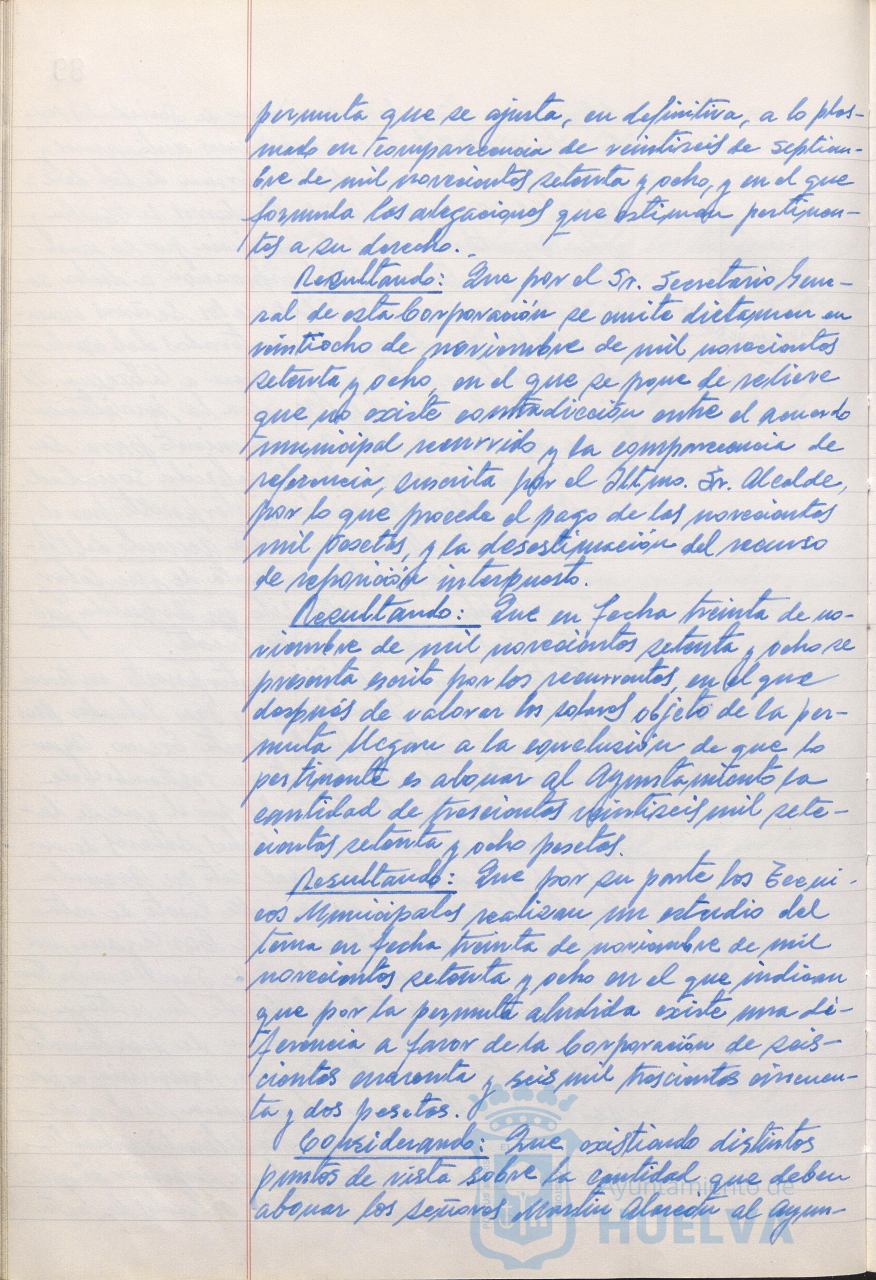 permuta que se ajusta, en definitiva, a lo plas-
mado en comparecencia de veintiseis de septiem-
bre de mil novecientos setenta y ocho, y en el que
formula las alegaciones que estiman pertinen-
tes a su derecho.
Resultando: Que por el Sr. Secretario Gene-
ral de esta Corporación se emite dictamen en
veintiocho de noviembre de mil novecientos
setenta y ocho, en el que se pone de relieve
que no existe contradicción entre el acuerdo
municipal recurrido y la comparecencia de
referencia, suscrita por el Iltmo. Sr. Alcalde,
por lo que procede el pago de las novecientas
mil pesetas, y la desestimación del recurso
de reposición interpuesto.
Resultando: Que en fecha treinta de no-
viembre de mil novecientos setenta y ocho se
presenta escrito por los recurrentes en el que
después de valorar los solares objeto de la per-
muta llegan a la conclusión de que lo
pertinente es abonar al Ayuntamiento la
cantidad de trescientas veintiseis mil sete-
cientas setenta y ocho pesetas.
Resultando: Que por su parte los Tecni-
cos Municipales realizan un estudio del
tema en fecha treinta de noviembre de mil
novecientos setenta y ocho en el que indican
que por la permuta aludida existe una di-
ferencia a favor de la Corporación de seis-
cientas cuarenta y seis mil trescientas cincuen-
ta y dos pesetas.
Considerando: Que, existiendo distintos
puntos de vista sobre la cantidad que deben
abonar los señores Martin Alarcón al Ayun-
Ayuntamiento de
HUELVA